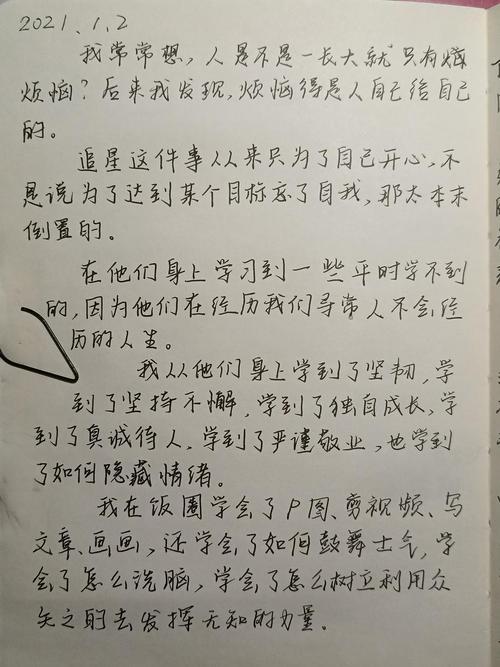 2021.1.2
我常常想，人是不是一长大就只有烦
烦恼？后来我发现，烦恼得是人自己给自己
的。
追星这件事从来只为了自己开心，不
是说为了达到某个目标忘了自我，那太本末
倒置的。
在他们身上学习到一些平时学不到
的，因为他们在经历我们寻常人不会经
历的人生。
我从他们身上学到了坚韧，学
到了坚持不懈，学到了独自成长，学
到了真诚待人，学到了严谨敬业，也学到
了如何隐藏情绪。
我在饭圈学会了P图、剪视频、写
文章、画画，还学会了如何鼓舞士气，学
会了怎么洗脑，学会了怎么树立利用众
矢之的去发挥无知的力量。